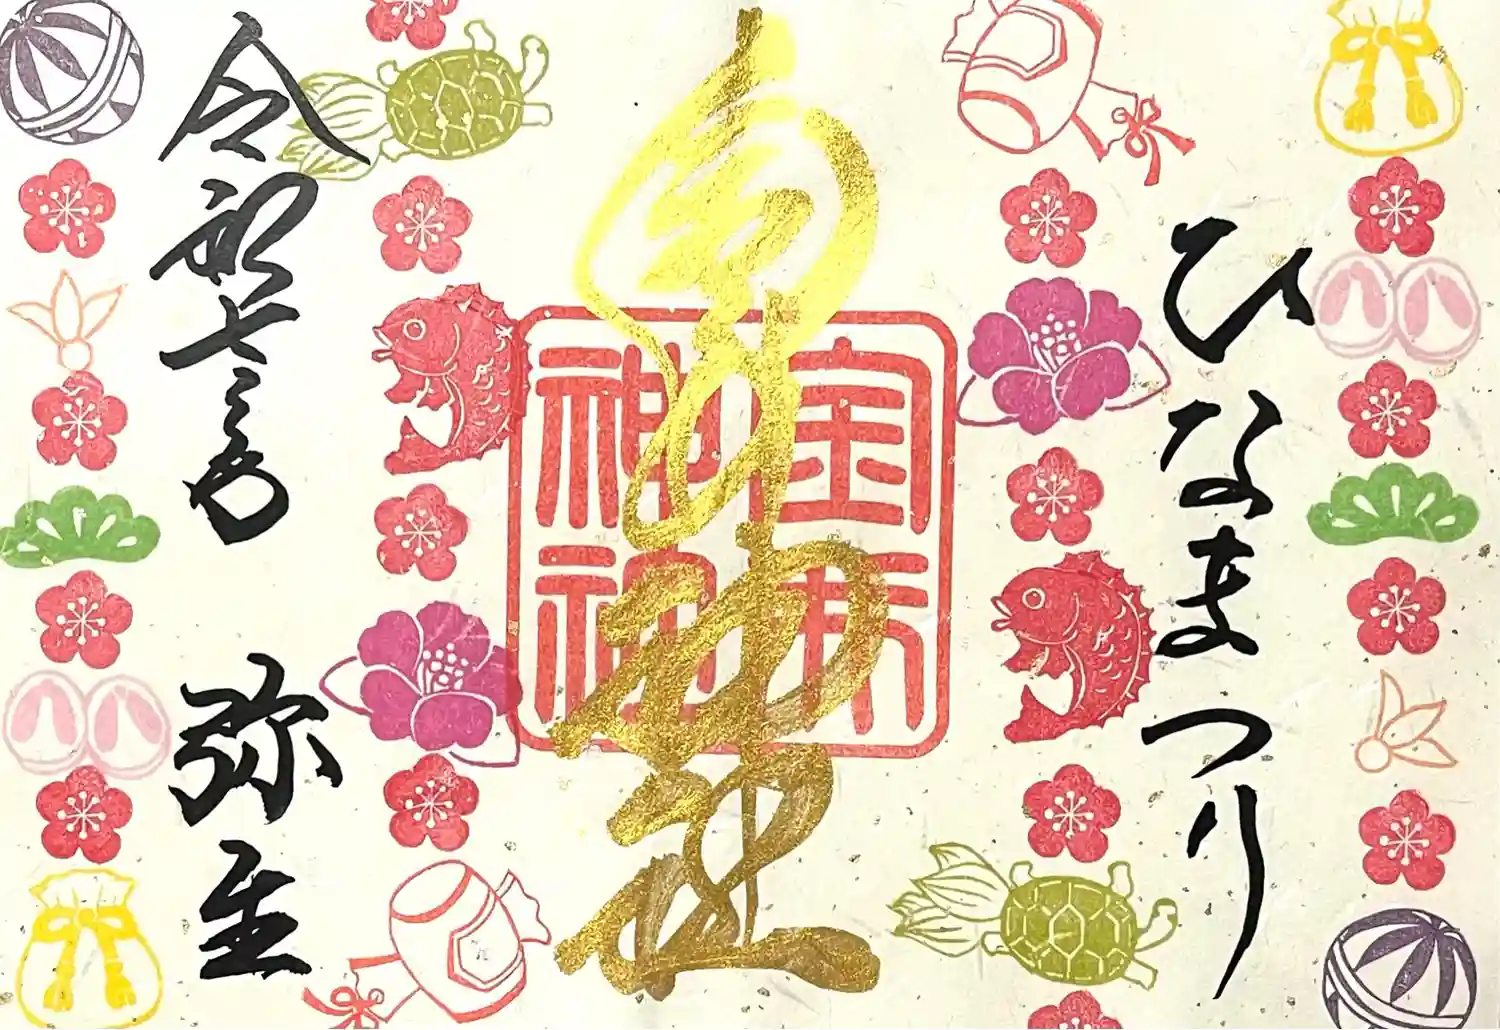 ひなまつり
宝来
神社
令和七年 弥生